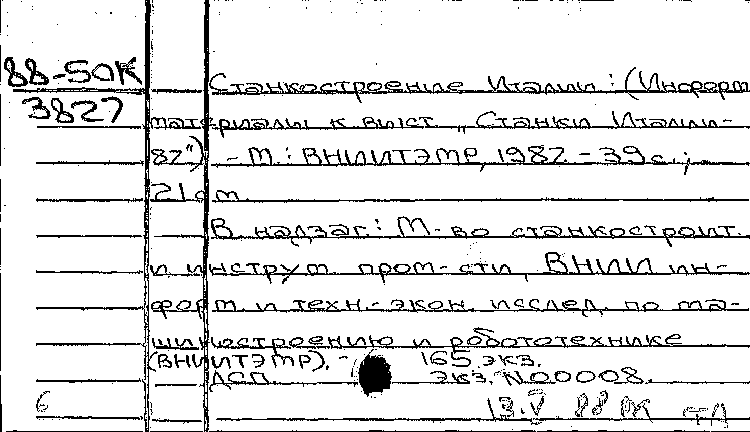 88-50К
3827
Станкостроение Италии : (Информ.
материалы к выст. „Станки Италии-
82") . - М. : ВНИИТЭМР, 1982 - 39 с. ;
21 см.
В надзаг. : М-во станкостроит.
и инструм. пром-сти, ВНИИ ин-
форм. и техн.-экон. исслед. по ма-
шиностроению и робототехнике
(ВНИИТЭМР). - 165 экз.
ДСП. Экз. N00008.
6 13.V 88 ОК